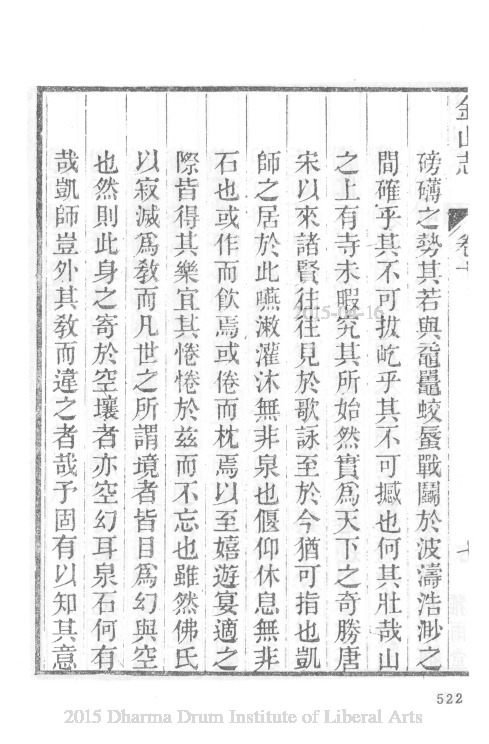 金山志 卷十 七
磅礴之勢其若與黿鼉蛟蜃戰鬭於波濤浩渺之
間確乎其不可拔屹乎其不可撼也何其壯哉山
之上有寺未暇究其所始然實爲天下之奇勝唐
宋以來諸賢往往見於歌詠至於今猶可指也凱
師之居於此嚥漱灌沐無非泉也偃仰休息無非
石也或作而飲焉或倦而枕焉以至嬉遊宴適之
際皆得其樂宜其惓惓於茲而不忘也雖然佛氏
以寂滅爲敎而凡世之所謂境者皆目爲幻與空
也然則此身之寄於空壤者亦空幻耳泉石何有
哉凱師豈外其敎而違之者哉予固有以知其意
2015-04-16
522
2015 Dharma Drum Institute of Liberal Arts